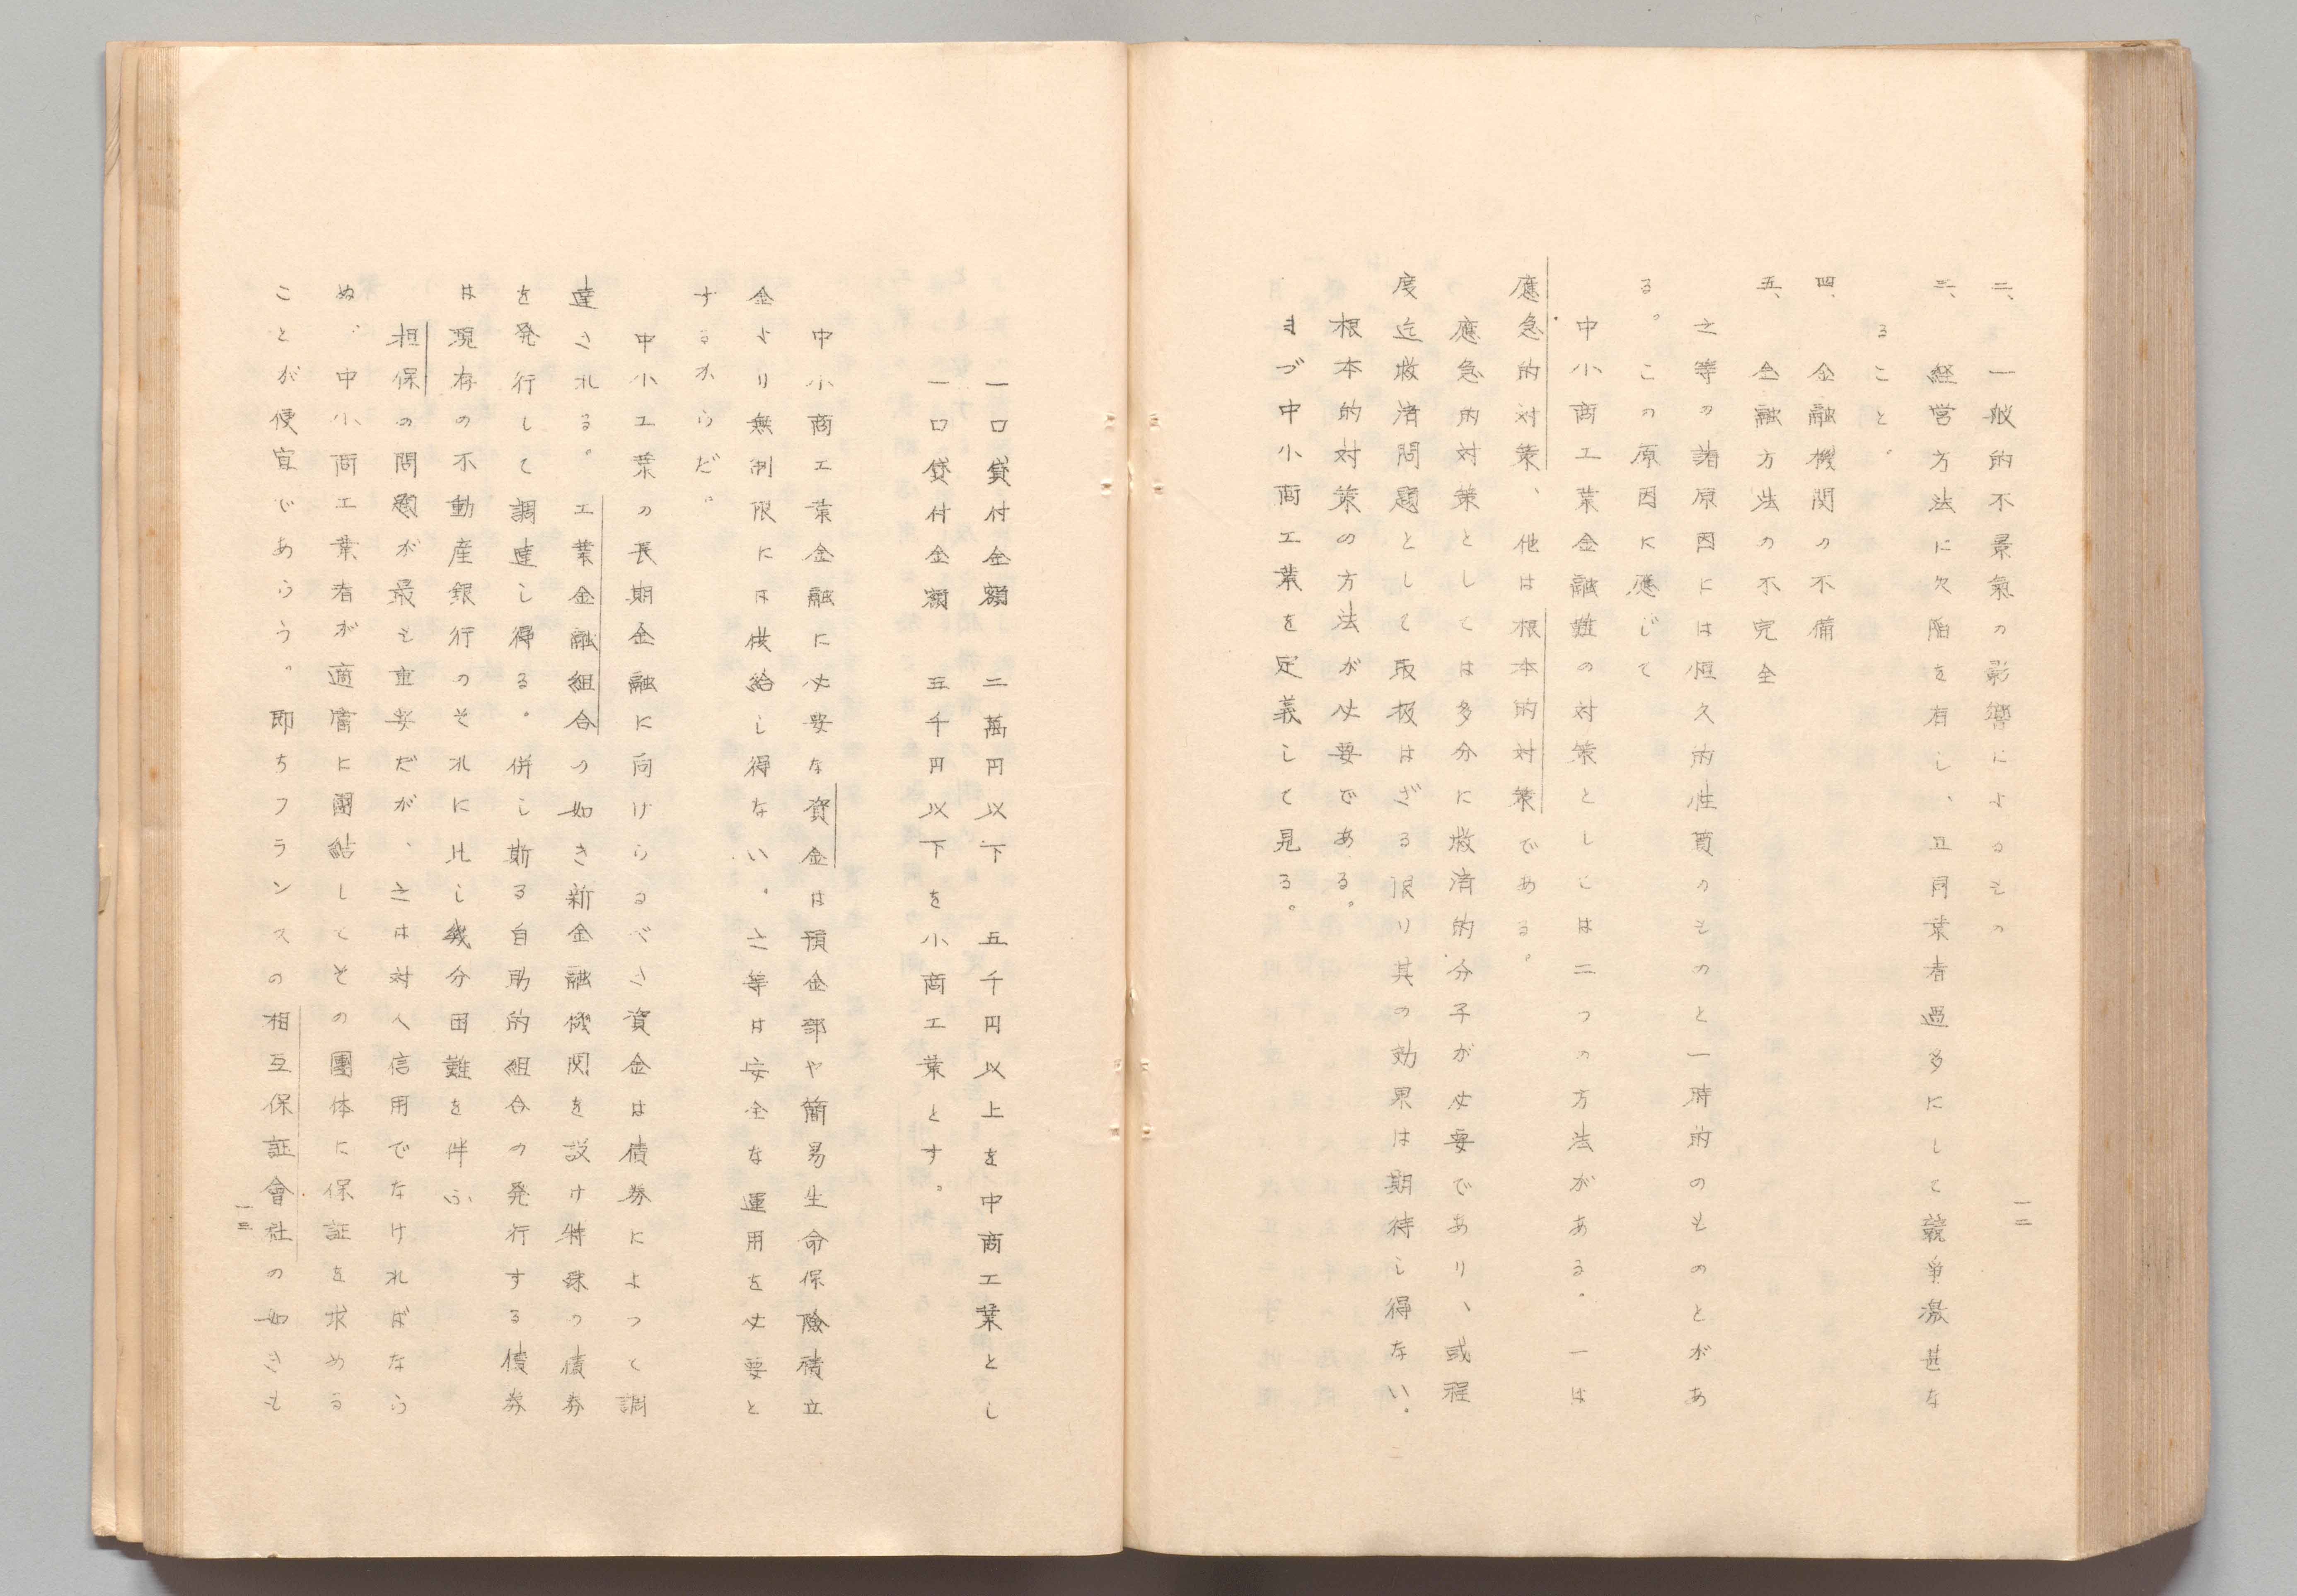 二、　一般的不景氣の影響によるもの
三、　経営方法に欠陥を有し、且同業者過多にして競争激甚な
ること。
四、　金融機関の不備
五、　金融方法の不完全
之等の諸原因には恒久的性質のものと一時的のものとがあ
る。この原因に應じて
中小商工業金融難の対策としては二つの方法がある。一は
應急的対策、他は根本的対策である。
應急的対策としては多分に救済的分子が必要であり、或程
度迄救済問題として取扱はざる限り其の効果は期待し得ない。
根本的対策の方法が必要である。
まづ中小商工業を定義して見る。
一二
一口貸付金額　二萬円以下　五千円以上を中商工業とし
一口貸付金額　五千円以下を小商工業とす。
中小商工業金融に必要な資金は預金部や簡易生命保険積立
金より無制限には供給し得ない。之等は安全な運用を必要と
するからだ。
中小工業の長期金融に向けらるべき資金は債券によつて調
達される。工業金融組合の如き新金融機関を設け特殊の債券
を発行して調達し得る。併し斯る自助的組合の発行する債券
は現存の不動産銀行のそれに比し幾分困難を伴ふ
担保の問題が最も重要だが、之は対人信用でなければなら
ぬ。中小商工業者が適當に團結してその團体に保証を求める
ことが便宜であらう。即ちフランスの相互保証會社の如きも
一三